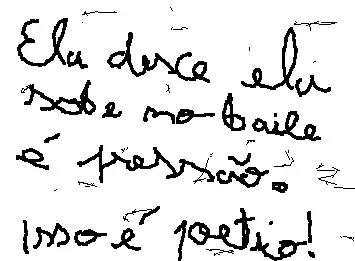 Ela desce ela
sobe no baile
é pressão.
Isso é poetio!